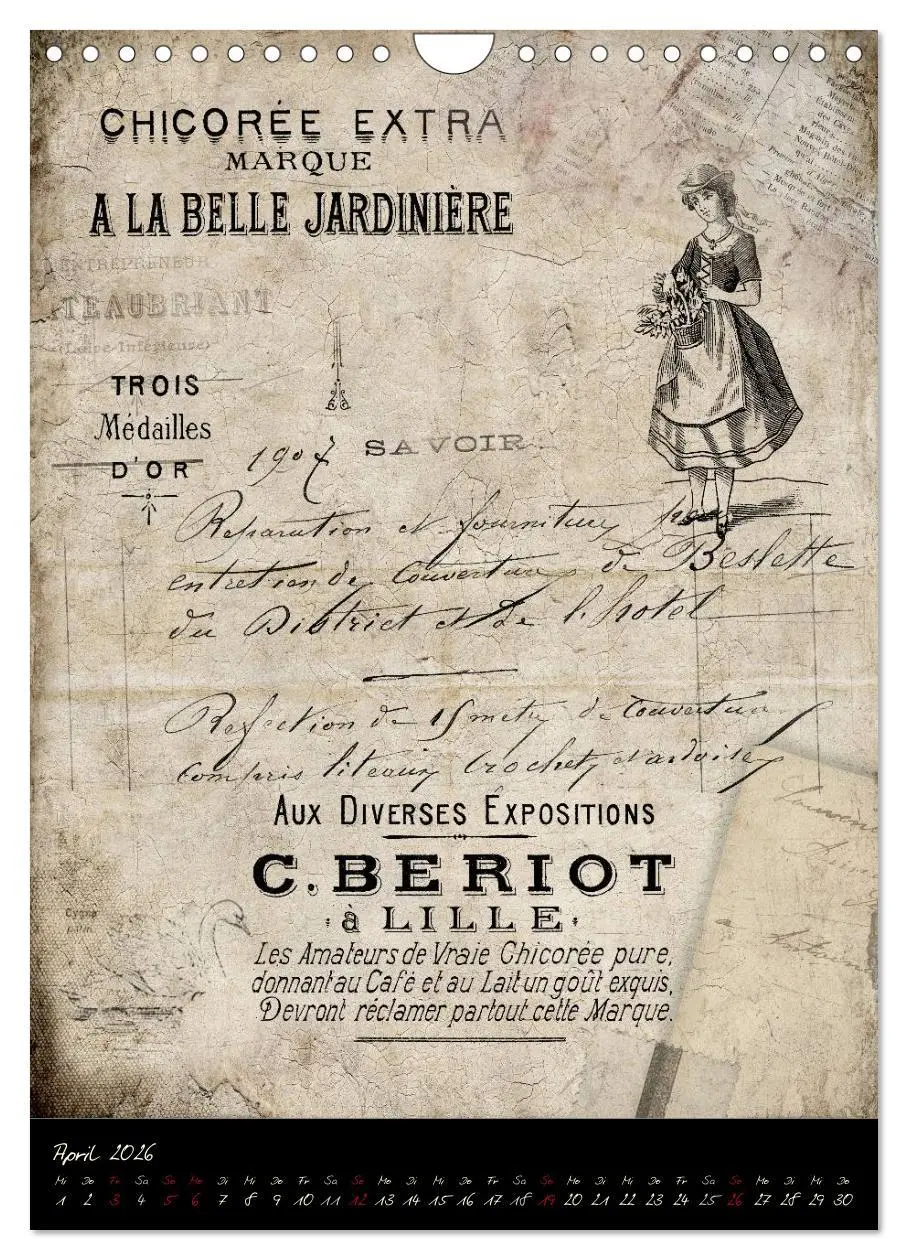 CHICORÉE EXTRA
MARQUE
A LA BELLE JARDINIÈRE
ENTREPRENEUR
TEAUBRIANT
(Loire-Inférieure)
TROIS
Médailles
D'OR
1907
SAVOIR
Reparation et fourniture pour
entretien de Couverture de Beslette
du District et de l'hotel
Refection de 15 metre de Couverture
Compris liteaux Crochet et ardoises
AUX DIVERSES EXPOSITIONS
C. BERIOT
à LILLE
Les Amateurs de Vraie Chicorée pure,
donnant au Café et au Lait un goût exquis,
Devront réclamer partout cette Marque.
Cygne
April 2026
Mi Do Fr Sa So Mo Di Mi Do Fr Sa So Mo Di Mi Do Fr Sa So Mo Di Mi Do Fr Sa So Mo Di Mi Do
1 2 3 4 5 6 7 8 9 10 11 12 13 14 15 16 17 18 19 20 21 22 23 24 25 26 27 28 29 30